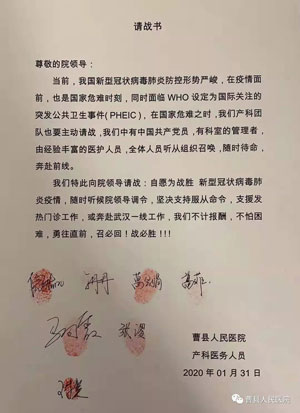 请战书
尊敬的院领导：
当前，我国新型冠状病毒肺炎防控形势严峻，在疫情面
前，也是国家危难时刻，同时面临 WHO 设定为国际关注的
突发公共卫生事件(PHEIC)，在国家危难之时，我们产科团
队也要主动请战，我们中有中国共产党员，有科室的管理者，
由经验丰富的医护人员，全体人员听从组织召唤，随时待命，
奔赴前线。
我们特此向院领导请战：自愿为战胜 新型冠状病毒肺
炎疫情，随时听候院领导调令，坚决支持服从命令，支援发
热门诊工作，或奔赴武汉一线工作，我们不计报酬，不怕困
难，勇往直前，召必回！战必胜！！！
曹县人民医院
产科医务人员
2020 年 01 月 31 日
曹县人民医院